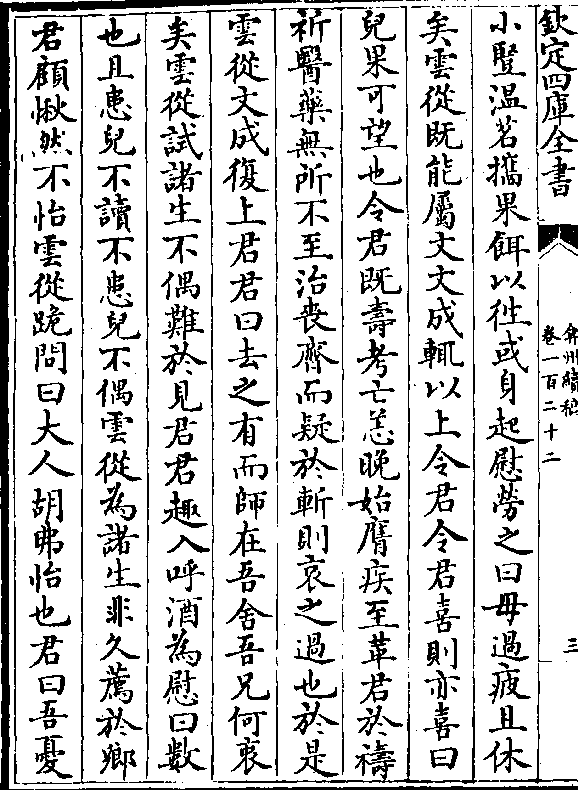 欽定四庫全書
弇州續稿
卷一百二十二
三
小豎温茗攜果餌以徃或身起慰勞之曰毋過疲且休
矣雲從既能屬文文成輒以上令君令君喜則亦喜曰
兒果可望也令君既壽考亡恙晚始膺疾至革君於禱
祈醫藥無所不至治丧齊而疑於斬則哀之過也於是
雲從文成復上君君曰去之有而師在吾舍吾兄何衷
矣雲從試諸生不偶難於見君君趣入呼酒為慰曰數
也且患兒不讀不患兒不偶雲從為諸生非久薦於鄉
君顧愀然不怡雲從跪問曰大人胡弗怡也君曰吾憂